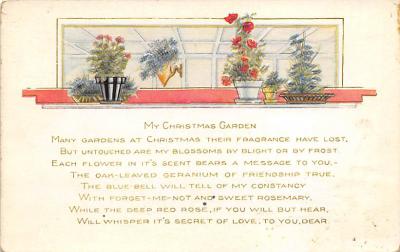 My Christmas Garden
Many gardens at Christmas their fragrance have lost,
But untouched are my blossoms by blight or by frost.
Each flower in it's scent bears a message to you,-
The oak-leaved geranium of friendship true,
The blue-bell will tell of my constancy
With forget-me-not and sweet rosemary,
While the deep red rose, if you will but hear,
Will whisper it's secret of love, to you, dear